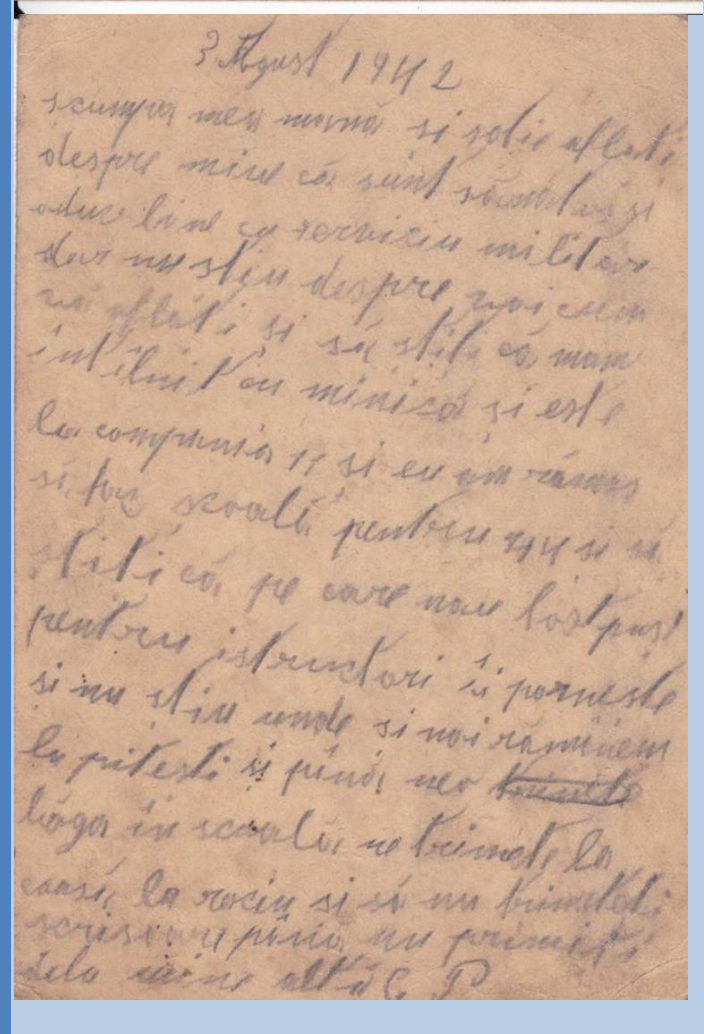 3 Agust 1942
scumpa mea mamă si sotie aflati
despre mine că sunt sănătos și
aduc bine cu serviciu militar
dar nu stiu despre voi cum
vă aflăti si să stiti că mam
intîlnit cu minică si este
la compania 11 si eu am rămas
să fac scoală pentru si să
stiti că pe care nau fost puși
pentru istructori îi porneste
si nu stiu unde si noi răminem
la pitesti și pînă neo
băga in scoală ne trimete la
casă la si să nu trimeteti
scrisoare pînă nu primiti
dela mine altă C P